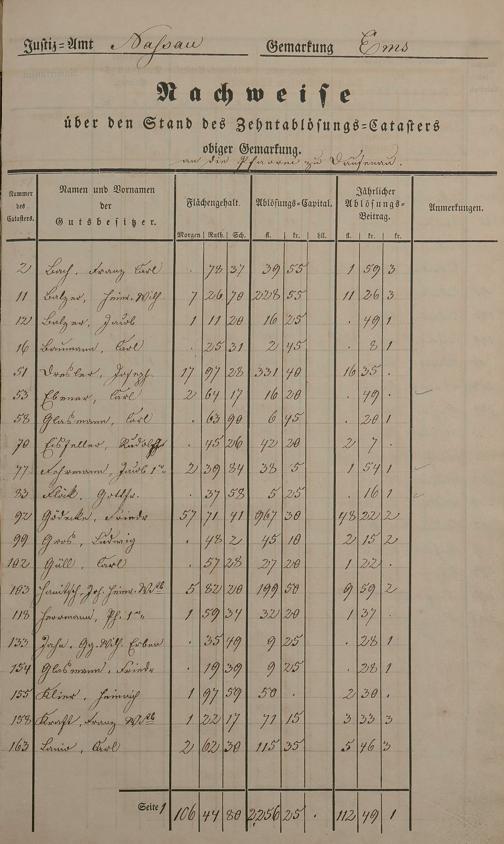 Justiz=Amt Nassau Gemarkung Ems
Nachweise
über den Stand des Zehntablösungs=Catasters
obiger Gemarkung.
an die Pfarrei zu Dausenau.
Nummer des Catasters. Namen und Vornamen der Gutsbesitzer. Flächengehalt. Ablösungs=Capital. Jährlicher Ablösungs=Beitrag. Anmerkungen.
Morgen Ruth. Sch. fl. kr. hll. fl. kr. hll.
2 Bach, Franz Carl . 78 37 39 55 1 59 3
11 Balzer, Heinr. Wilh. 7 26 70 228 55 11 26 3
12 Balzer, Jacob 1 11 20 16 25 . 49 1
16 Baumann, Carl . 25 31 2 45 . 8 1
51 Dresler, Joseph 17 97 28 331 40 16 35 .
53 Ebener, Carl 2 64 17 16 20 . 49 .
58 Glasmann, Carl . 63 90 6 45 . 20 1
70 Eisfeller, Rudolph . 45 26 42 20 2 7 .
77 Fuhrmann, Jacob 1r 2 39 84 38 5 1 54 1
83 Flöck, Gotthr. . 37 58 5 25 . 16 1
92 Gödecke, Friedr 57 71 41 967 30 48 22 2
99 Gros, Ludwig . 48 2 45 10 2 15 2
102 Güll, Carl . 57 28 27 20 1 22 .
103 Hanitsch, Joh. Heinr. Wtb 5 82 20 199 50 9 59 2
118 Herrmann, Ph. 1r 1 59 34 32 20 1 37 .
133 Jahr, Gg. Wilh. Erben . 35 49 9 25 . 28 1
154 Glasmann, Friedr . 19 39 9 25 . 28 1
155 Klier, Heinrich 1 97 59 50 . 2 30 .
158 Kraft, Franz Wtb 1 22 17 71 15 3 33 3
163 Lanio, Carl 2 62 30 115 35 5 46 3
Seite 1 106 44 80 2256 25 . 112 49 1